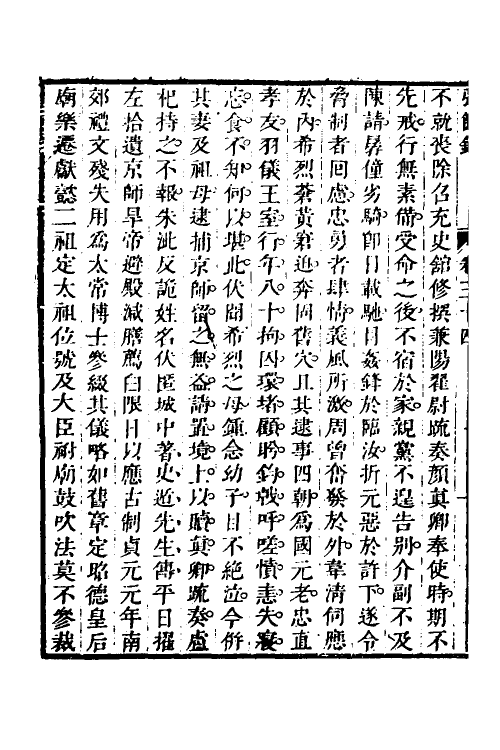 不就喪除召充史館修撰兼陽翟尉疏奏顏真卿奉使時期不
先戒行無素備受命之後不宿於家親黨不遑告別介副不及
陳請孱僮劣騎即日載馳目姦鋒於臨汝折元惡於許下遂令
脅制者回慮忠勇者肆情義風所激周曾奮發於外韋清伺應
於內希烈蒼黃窘迫奔固舊穴且其逮事四朝為國元老忠直
孝友羽儀王室行年八十拘囚環堵顧眄鈎戟呼嗟憤恚失寢
忘食不知何以堪此伏聞希烈之母鍾念幼子目不絕泣今併
其妻及祖母逮捕京師留之無益請置境上以贖真卿疏奏盧
杞持之不報朱泚反詭姓名伏匿城中著史遁先生傳平日擢
左拾遺京師旱帝避殿減膳薦臼限日以應古制貞元元年南
郊禮文殘失用為太常博士參綴其儀略如舊章定昭德皇后
廟樂遷獻懿二祖定太祖位號及大臣祔廟鼓吹法莫不參裁
卷三十四